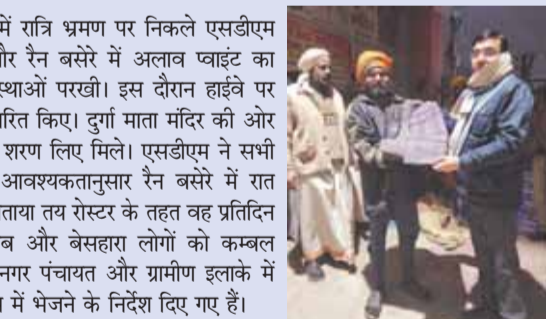 में रात्रि भ्रमण पर निकले एसडीएम
और रैन बसेरे में अलाव प्वाइंट का
स्थाओं परखी। इस दौरान हाईवे पर
रित किए। दुर्गा माता मंदिर की ओर
शरण लिए मिले। एसडीएम ने सभी
आवश्यकतानुसार रैन बसेरे में रात
ताया तय रोस्टर के तहत वह प्रतिदिन
ब और बेसहारा लोगों को कम्बल
नगर पंचायत और ग्रामीण इलाके में
में भेजने के निर्देश दिए गए हैं।